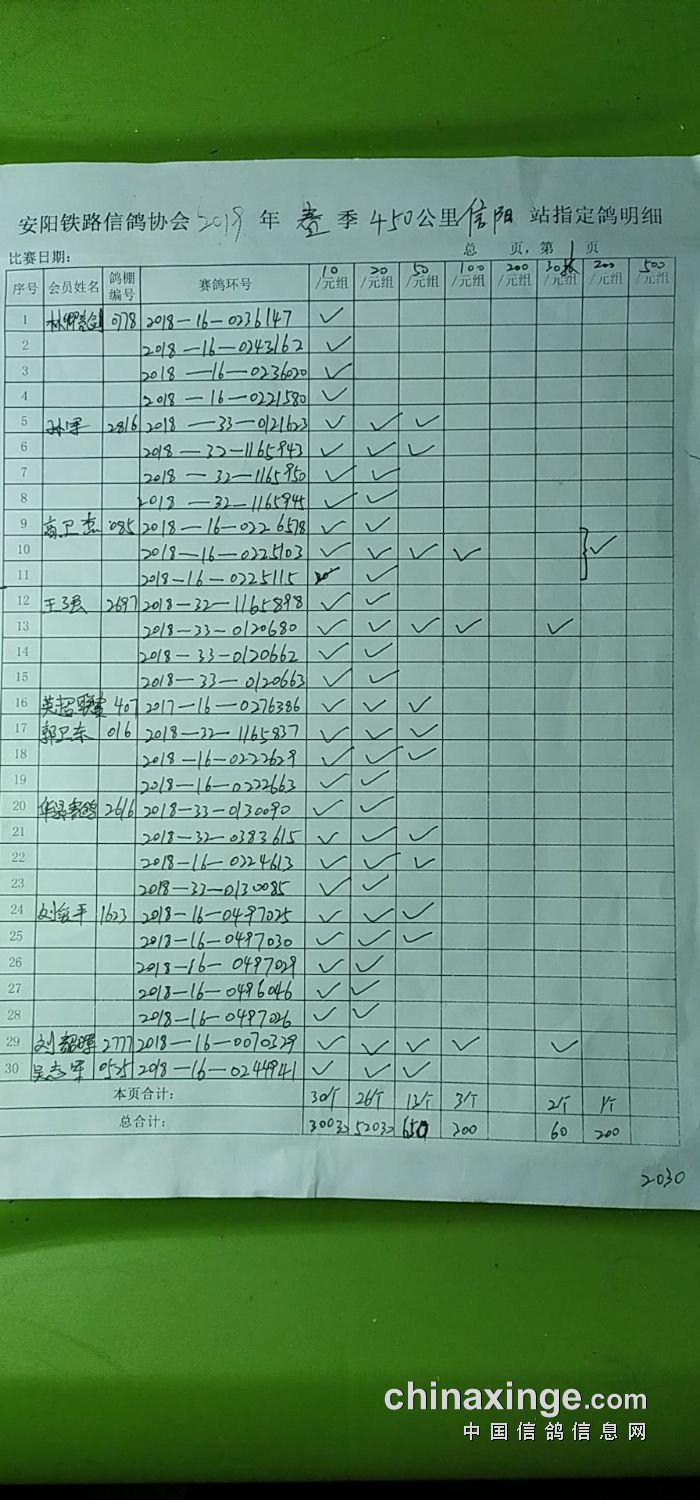 安阳铁路信鸽协会2019年 春 季 450公里信阳 站指定鸽明细
比赛日期: 总 页,第1页
序号 会员姓名 鸽棚编号 赛鸽环号 10/元组 20/元组 50/元组 100/元组 200/元组 /元组 200/元组 500/元组
1 0778 2018-16-0236147 ✓
2 2018-16-0243162 ✓
3 2018-16-0236020 ✓
4 2018-16-0221580 ✓
5 孙军 2816 2018-33-0121623 ✓ ✓ ✓
6 2018-32-1165943 ✓ ✓ ✓
7 2018-32-1165950 ✓ ✓
8 2018-32-1165945 ✓ ✓
9 高卫杰 085 2018-16-0226578 ✓ ✓
10 2018-16-0225103 ✓ ✓ ✓ ✓ ✓
11 2018-16-0225115 ✓
12 王强 2697 2018-32-1165898 ✓ ✓
13 2018-33-0120680 ✓ ✓ ✓ ✓ ✓
14 2018-33-0120662 ✓ ✓
15 2018-33-0120663 ✓ ✓
16 英超联赛 407 2017-16-0276386 ✓ ✓ ✓
17 郭卫东 016 2018-32-1165837 ✓ ✓ ✓
18 2018-16-0222629 ✓ ✓ ✓
19 2018-16-0222663 ✓ ✓
20 2616 2018-33-0130090 ✓ ✓
21 2018-32-0383615 ✓ ✓ ✓
22 2018-16-0224613 ✓ ✓ ✓
23 2018-33-0130085 ✓ ✓
24 1623 2018-16-0497025 ✓ ✓ ✓
25 2018-16-0497030 ✓ ✓ ✓
26 2018-16-0497029 ✓ ✓
27 2018-16-0496046 ✓ ✓
28 2018-16-0497026 ✓ ✓
29 刘韶晖 2777 2018-16-0070329 ✓ ✓ ✓ ✓ ✓
30 吴志军 0525 2018-16-0244941 ✓ ✓ ✓
本页合计: 30个 26个 13个 3个 2个 1个
总合计: 300 520 650 300 60 200
2030
chinaxinge.com
中国信鸽信息网